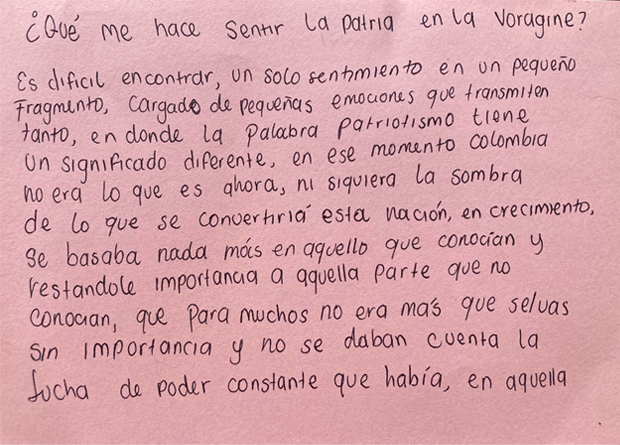 ¿Qué me hace sentir la patria en la Voragine?
Es dificil encontrar, un solo sentimiento en un pequeño
Fragmento, cargado de pequeñas emociones que transmiten
tanto, en donde la palabra patriotismo tiene
un significado diferente, en ese momento colombia
no era lo que es ahora, ni siquiera la sombra
de lo que se convertiría esta nación, en crecimiento,
se basaba nada más en aquello que conocían y
restandole importancia a aquella parte que no
conocian, que para muchos no era más que selvas
sin importancia y no se daban cuenta la
lucha de poder constante que había, en aquella